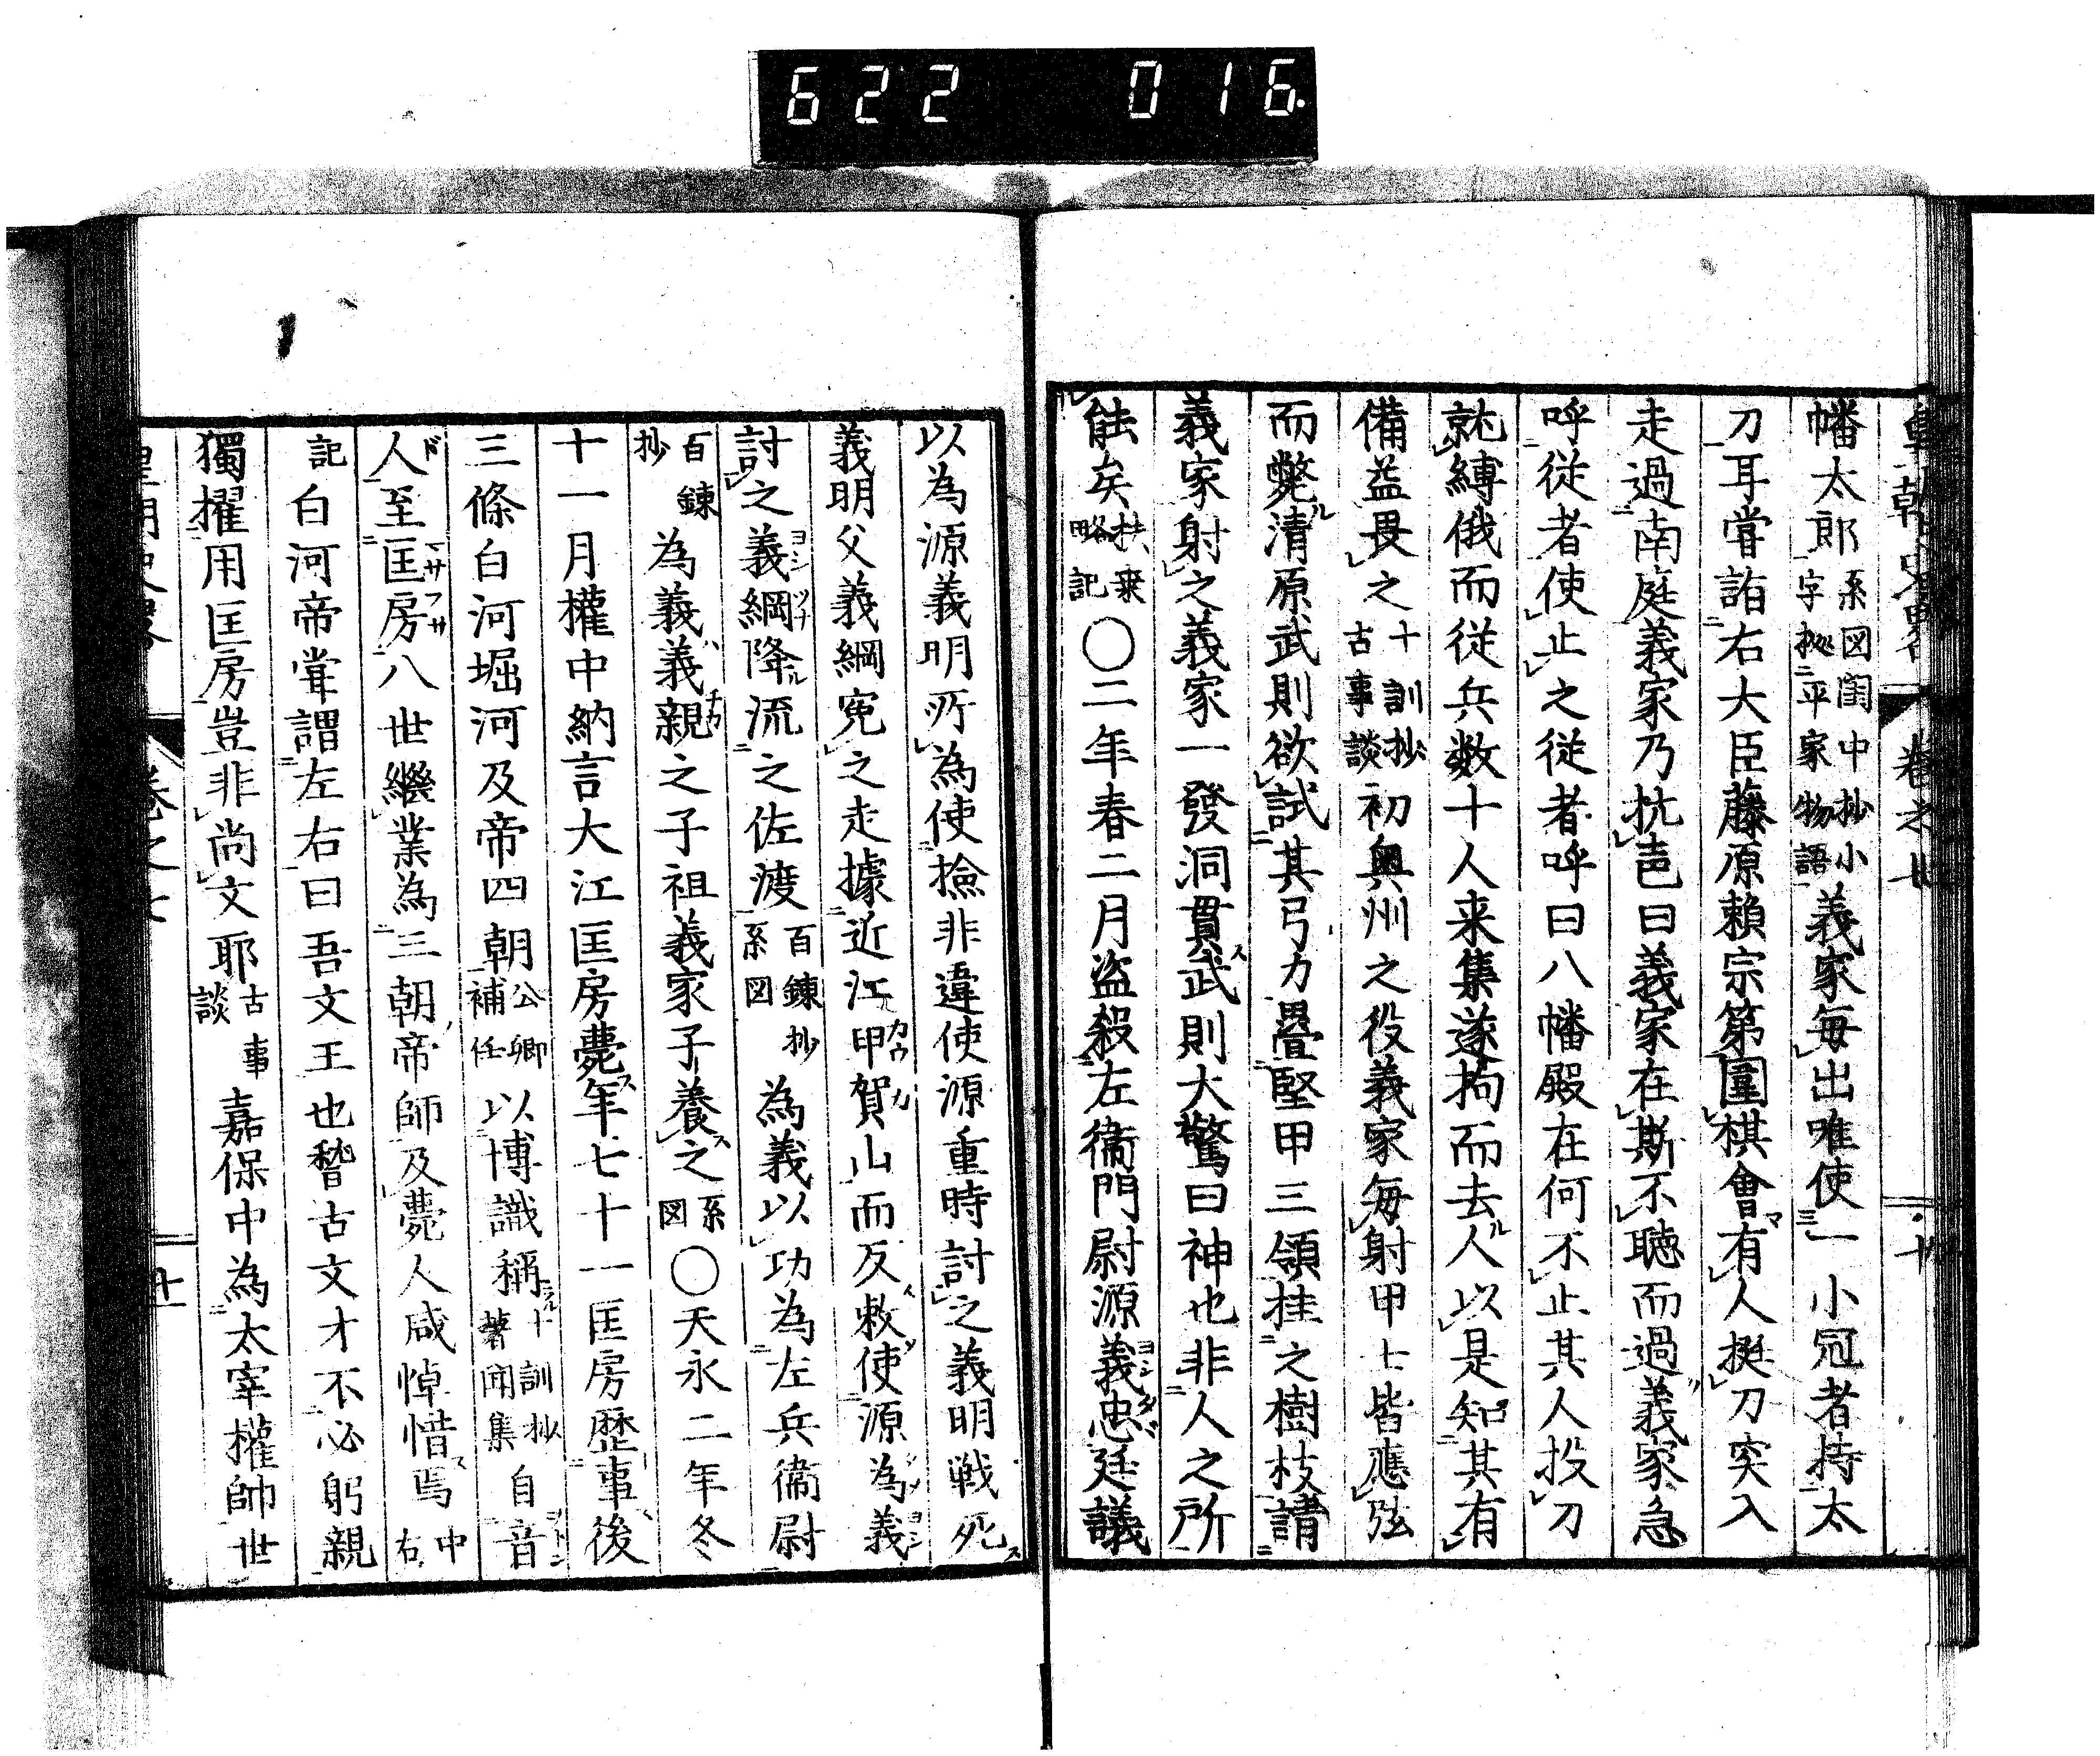 622 016
幡太郎系図閨中抄小字拠二平家物語義家毎出唯使一小冠者持太
刀耳嘗詣右大臣藤原頼宗第圍棋會有人挺刀突入
走過南庭義家乃抗声曰義家在斯不聴而過義家急
呼従者使止之従者呼曰八幡殿在何不止其人投刀
就縛俄而従兵数十人来集遂拘而去人以是知其有
備益畏之十訓抄古事談初奥州之役義家毎射甲士皆應弦
而斃清原武則欲試其弓力畳堅甲三領挂之樹枝請
義家射之義家一發洞貫武則大驚曰神也非人之所
能矣扶桒略記〇二年春二月盗殺左衛門尉源義忠廷議
以為源義明所為使撿非違使源重時討之義明戦死
義明父義綱寃之走據近江甲賀山而反敕使源為義
討之義綱降流之佐渡百錬抄系図為義以功為左兵衛尉
百錬抄為義義親之子祖義家子養之系図〇天永二年冬
十一月權中納言大江匡房薨年七十一匡房歴事後
三條白河堀河及帝四朝公卿補任以博識稱十訓抄著聞集自音
人至匡房八世繼業為三朝帝師及薨人咸悼惜焉中右
記白河帝甞謂左右曰吾文王也稽古文才不必躬親
獨擢用匡房豈非尚文耶古事談嘉保中為太宰權帥世